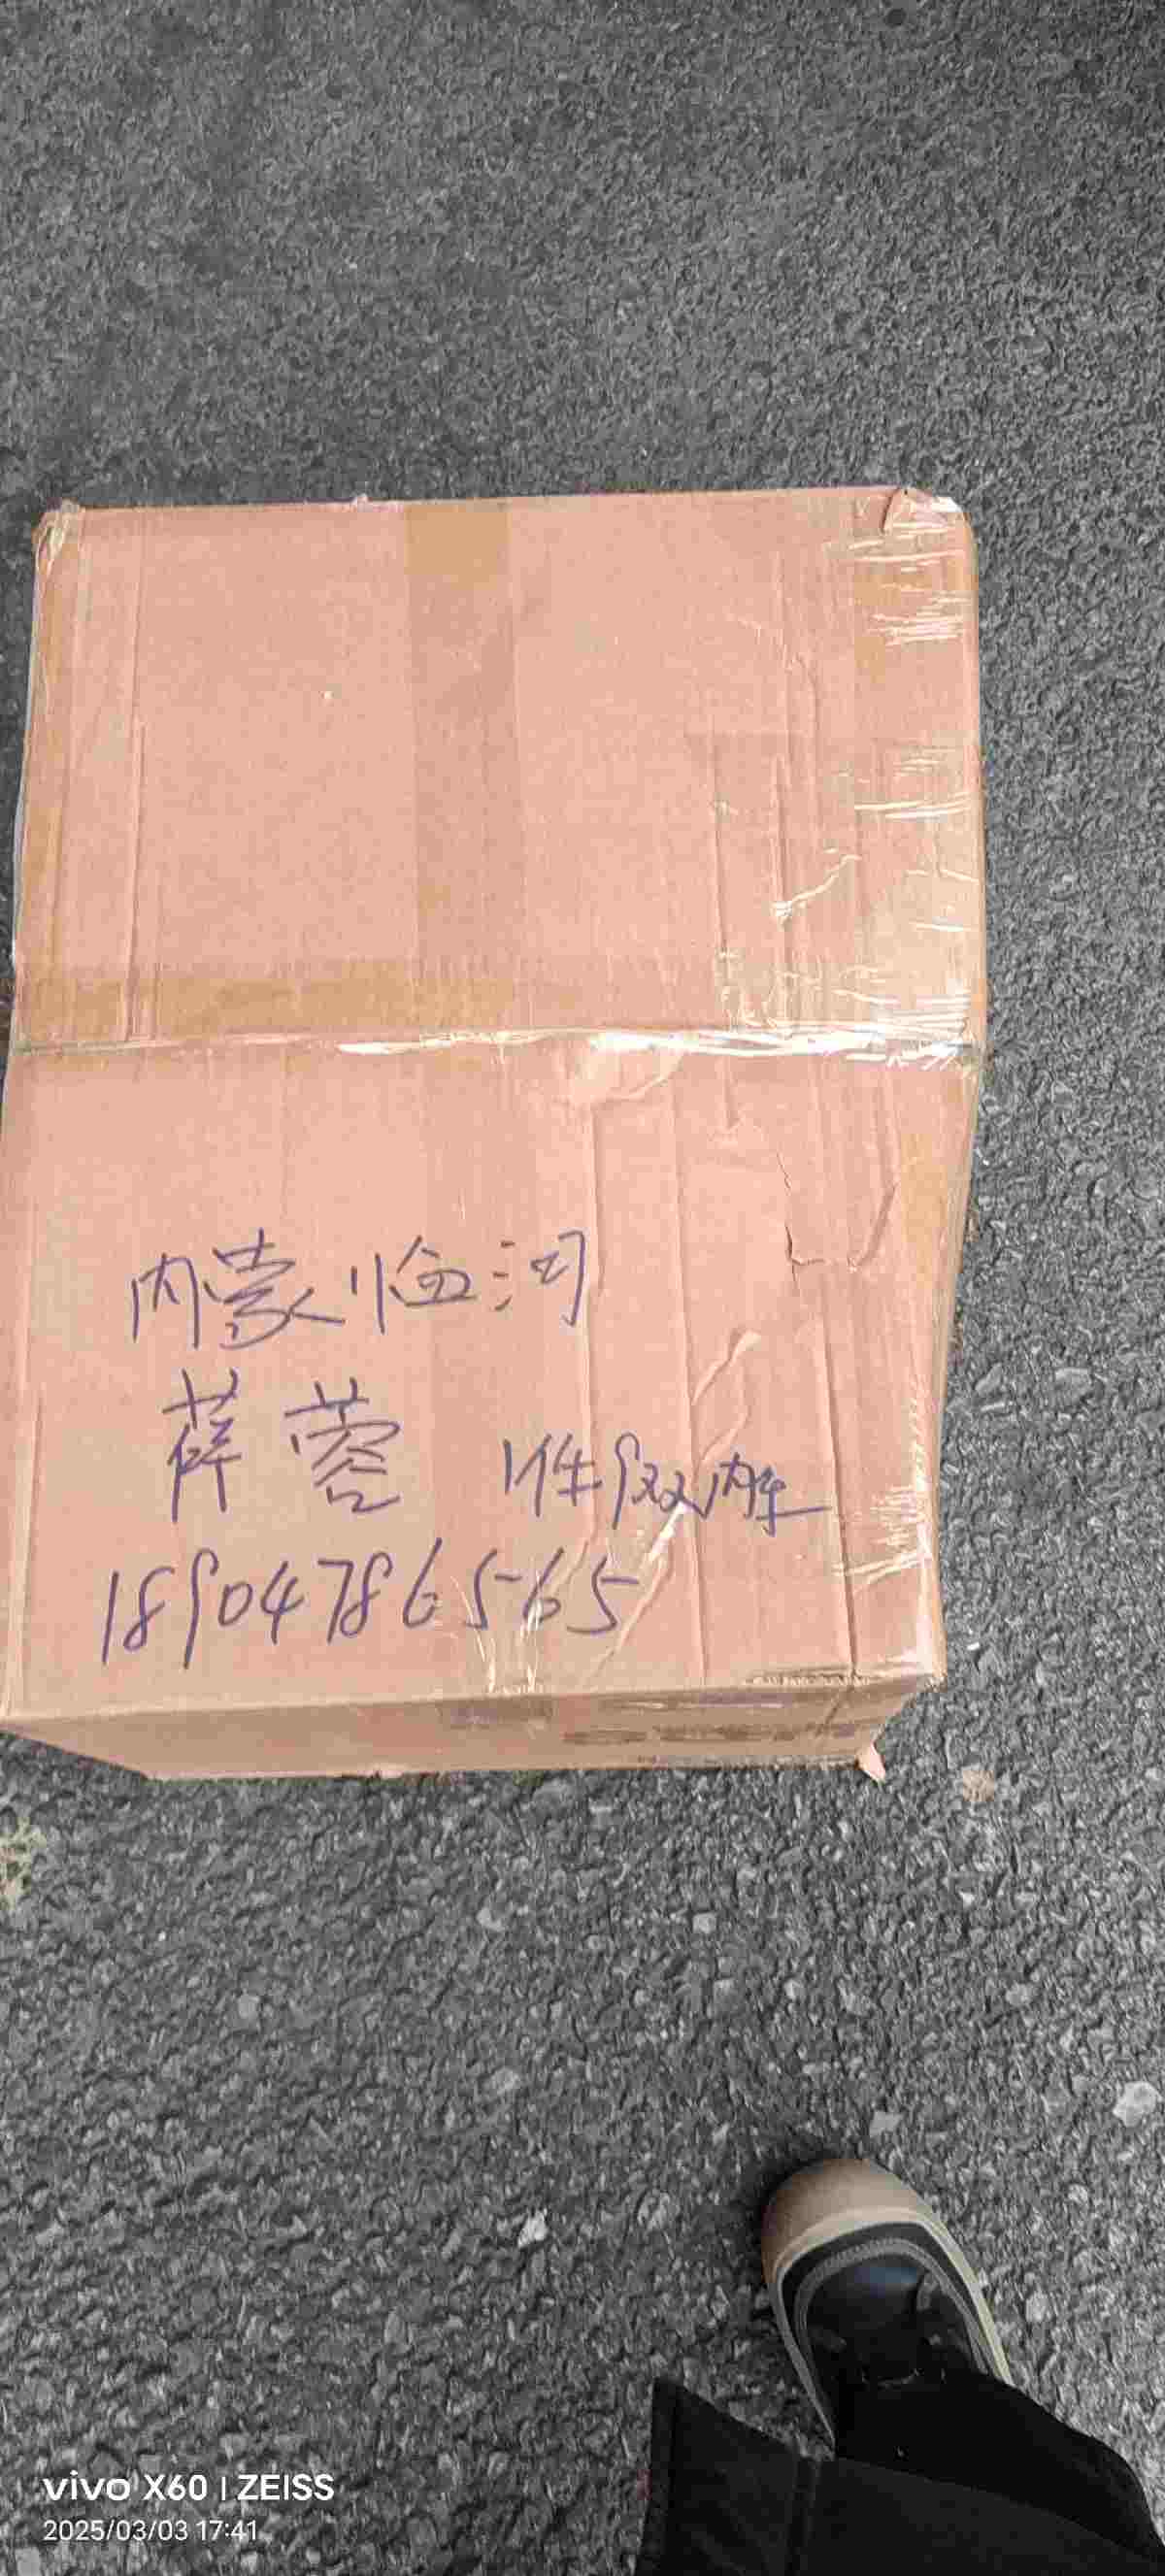 内蒙临河
薛蓉 1件9双内车
18904786565
vivo X60 | ZEISS
2025/03/03 17:41